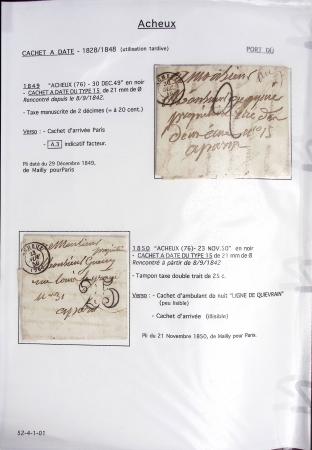 Acheux
CACHET A DATE - 1828/1848 (utilisation tardive)
PORT DÛ
1849 "ACHEUX (76) - 30 DEC.49" en noir
- CACHET A DATE DU TYPE 15, de 21 mm de Ø
Rencontré depuis le 8/9/1842.
- Taxe manuscrite de 2 décimes (= à 20 cent.)
Verso : - Cachet d'arrivée Paris
- A.3 indicatif facteur.
Pli daté du 29 Décembre 1849,
de Mailly pour Paris.
a monsieur
2
a paris
1850 "ACHEUX (76)- 23 NOV.50" en noir
- CACHET A DATE DU TYPE 15 de 21 mm de Ø
Rencontré à partir de 8/9/1842
- Tampon taxe double trait de 25 c.
Verso : - Cachet d'ambulant de nuit "LIGNE DE QUEVRAIN"
(peu lisible)
- Cachet d'arrivée (illisible)
Pli du 21 Novembre 1850, de Mailly pour Paris.
Monsieur
25
a paris
52-4-1-01